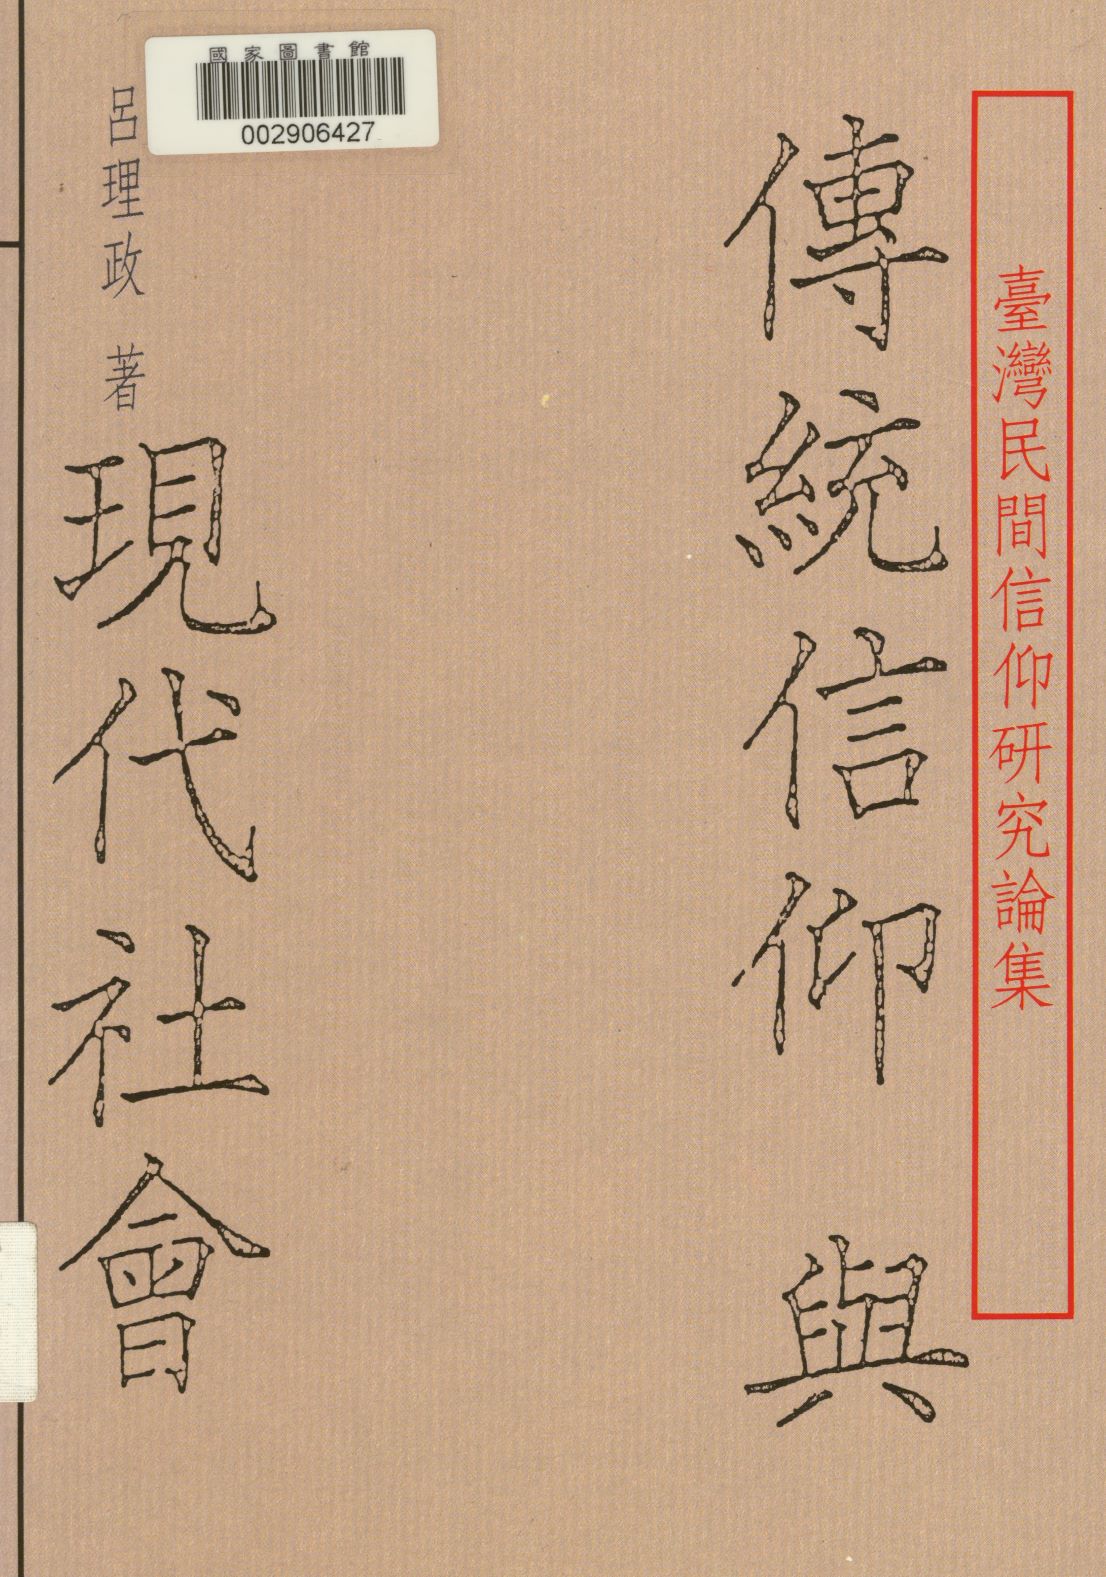 臺灣民間信仰研究論集
傳統信仰與
現代社會
呂理政 著
國家圖書館
002906427